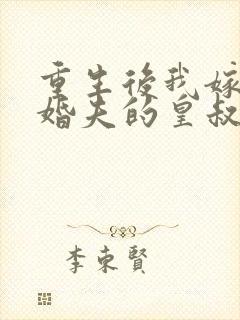 重生後我嫁
婚夫的皇叔
李東賢